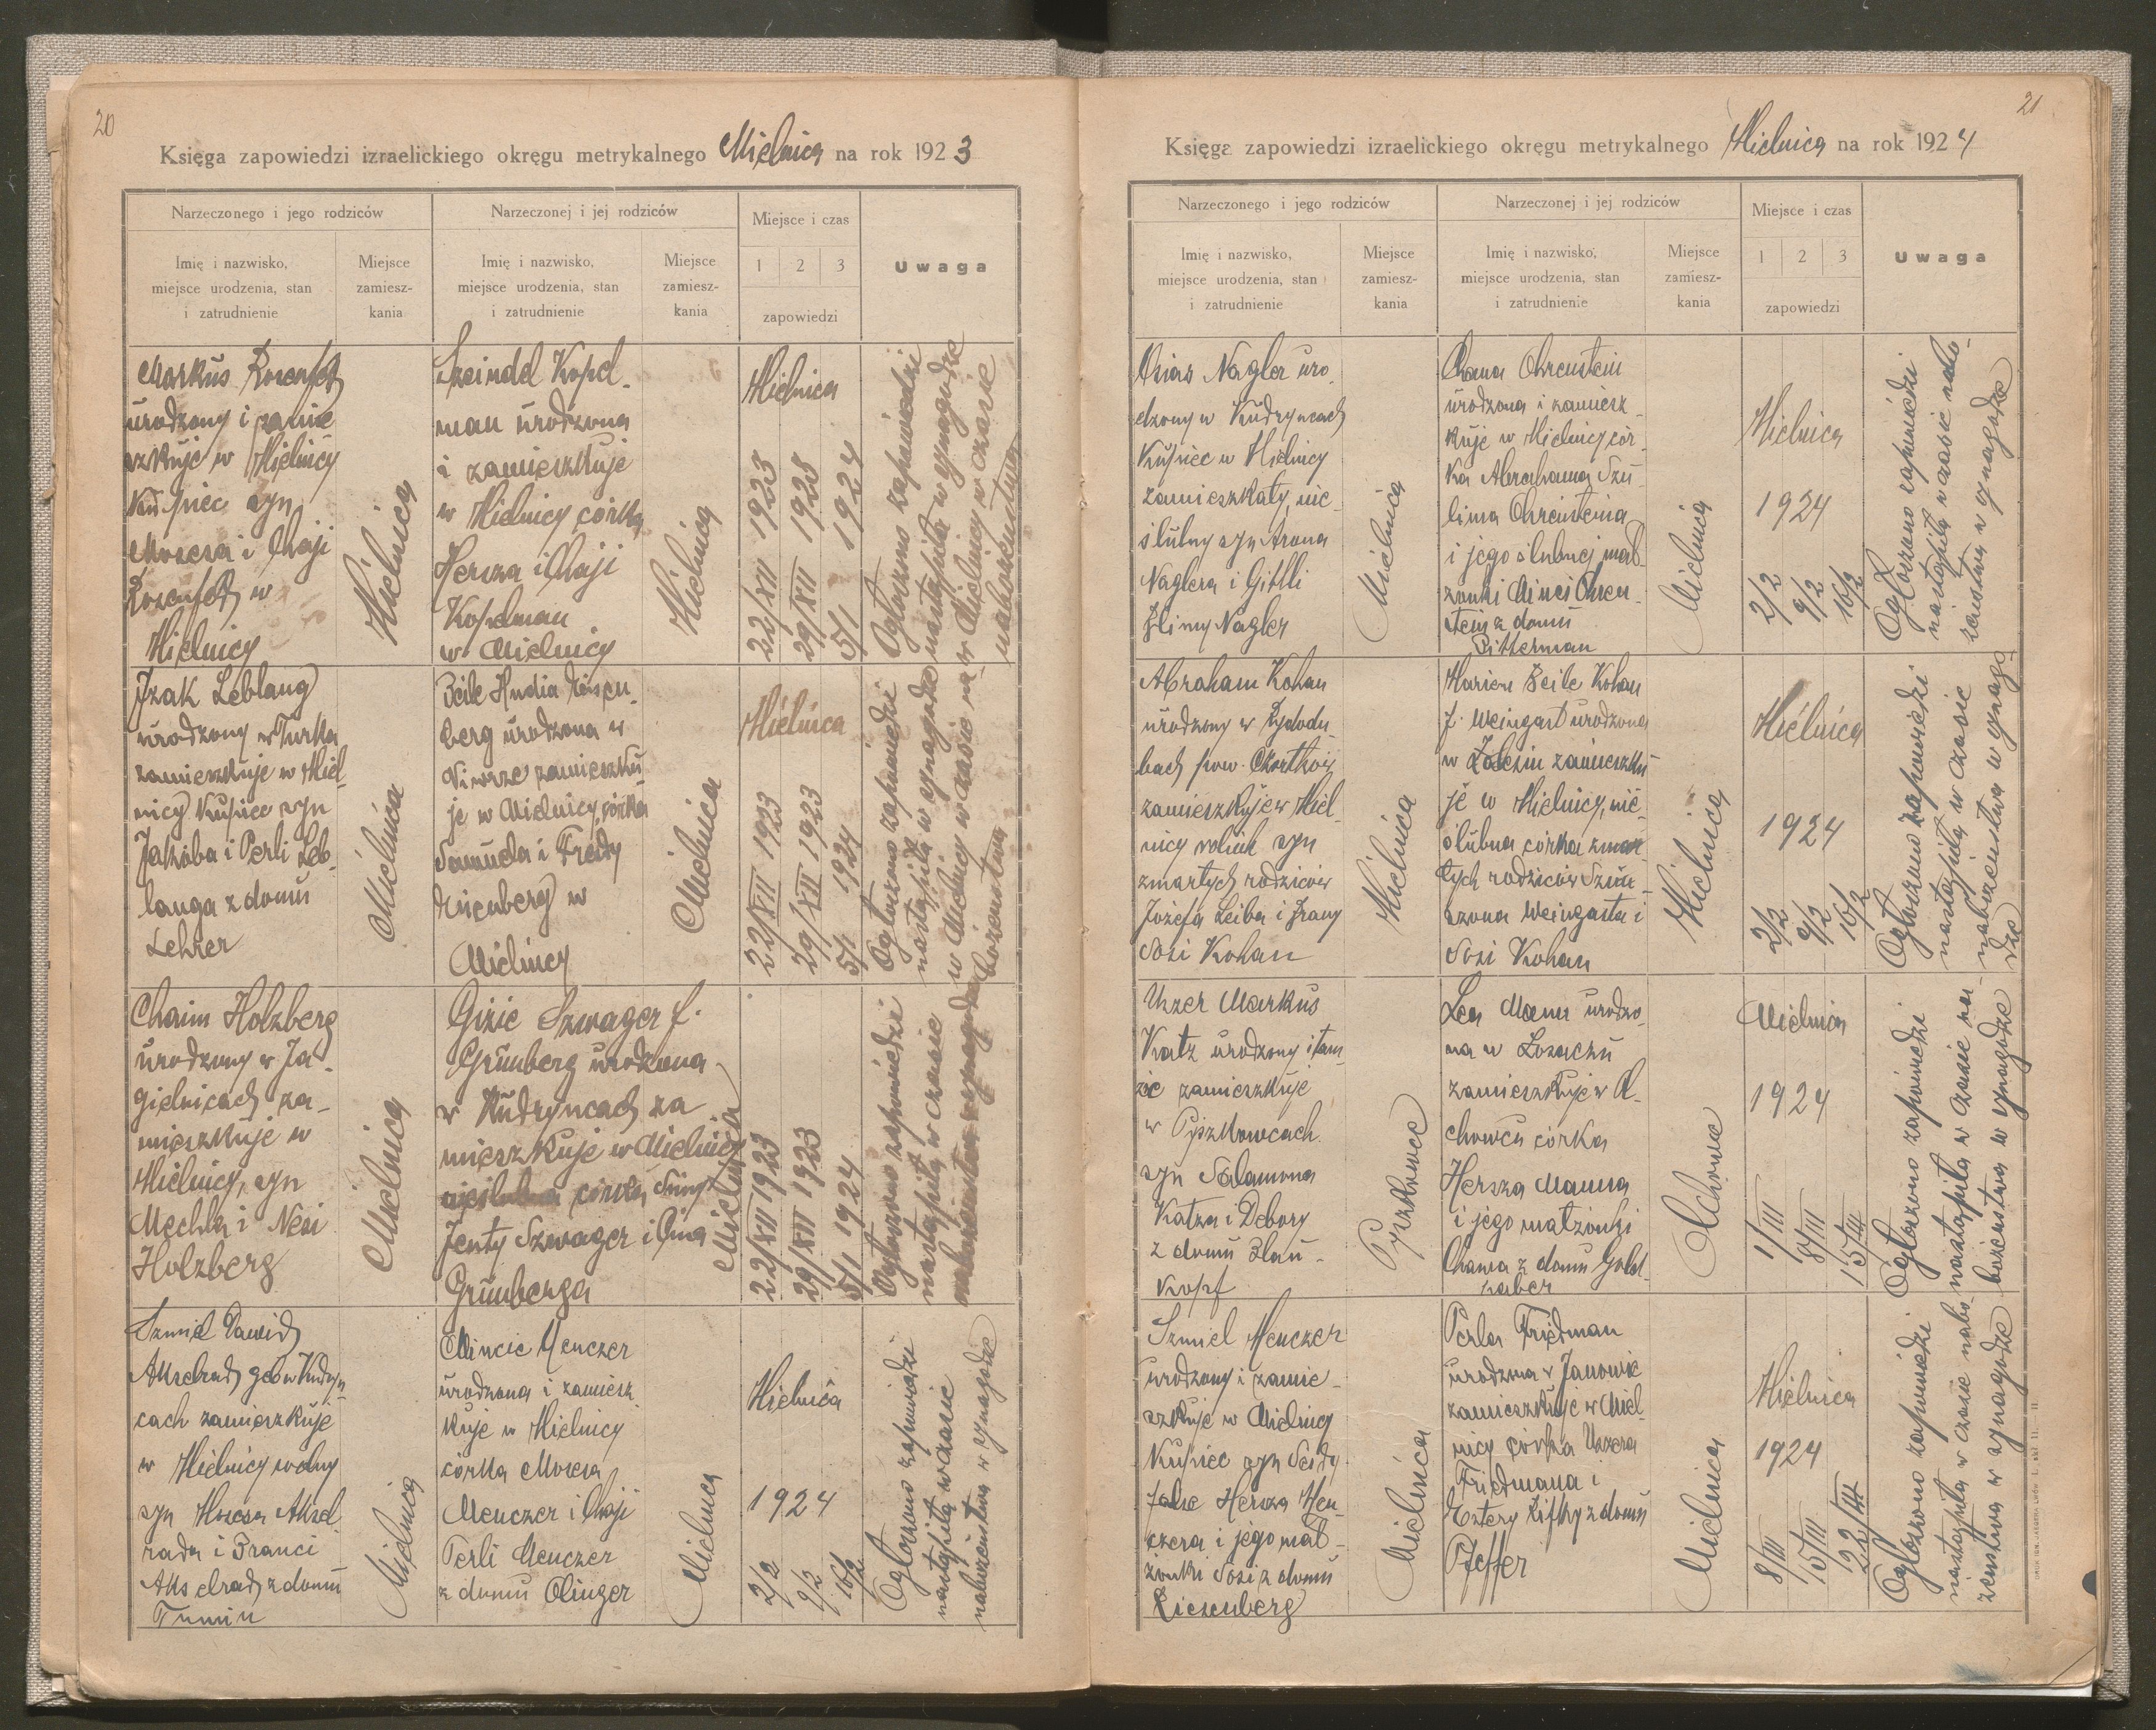 20
Księga zapowiedzi izraelickiego okręgu metrykalnego Mielnica na rok 1923
Narzeczonego i jego rodziców
Narzeczonej i jej rodziców
Miejsce i czas
Imię i nazwisko,
miejsce urodzenia, stan
i zatrudnienie
Miejsce
zamiesz-
kania
Imię i nazwisko,
miejsce urodzenia, stan
i zatrudnienie
Miejsce
zamiesz-
kania
1 2 3
zapowiedzi
Uwaga
Markus
urodzony i zamie
szkuje w Mielnicy
Kupiec syn
Mozesa i Chaji
w
Mielnicy
Mielnica
Szeindel Kopel-
man urodzona
i zamieszkuje
w Mielnicy córka
Hersza i Chaji
Kopelman
w Mielnicy
Mielnica
Mielnica
22/XII 1923
29/XII 1923
5/1 1924
Ogłoszono zapowiedzi
nastąpiło w synagodze
w Mielnicy w czasie
nabożeństwa
Izak Leblang
urodzony w Turka
zamieszkuje w Miel
nicy Kupiec syn
Jakóba i Perli Leb-
langa z domu
Lehrer
Mielnica
Beile Hudia
berg urodzona w
zamieszku
je w Mielnicy, córka
Samuela i Freidy
w
Mielnicy
Mielnica
Mielnica
22/XII 1923
29/XII 1923
5/1 1924
Ogłoszono zapowiedzi
nastąpiło w synagodze
w Mielnicy w czasie na-
bożeństwa
Chaim Holzberg
urodzony w Ja-
gielnicach za-
mieszkuje w
Mielnicy, syn
Mechla i Nesi
Holzberg
Mielnica
Gizie Szwager f.
Grünberg urodzona
w Kudryncach za
mieszkuje w Mielnicy
córka
Jenty Szwager i
Grünberga
Mielnica
22/XII 1923
29/XII 1923
5/1 1924
Ogłoszono zapowiedzi
nastąpiło w czasie
nabożeństwa w synagodze
Szmiel Dawid
Akselrad geb w Kudryn
cach zamieszkuje
w Mielnicy wolny
syn Mozesa Aksel
rada i Franci
Akselrad z domu
Tumin
Mielnica
Mincie Menczer
urodzona i zamiesz
kuje w Mielnicy
córka Mozesa
Menczer i Chaji
Perli Menczer
z domu Olinger
Mielnica
Mielnica
1924
2/2
9/2
16/2
Ogłoszono zapowiedzi
nastąpiło w czasie
nabożeństwa w synagodze
21
Księga zapowiedzi izraelickiego okręgu metrykalnego Mielnica na rok 1924
Narzeczonego i jego rodziców
Narzeczonej i jej rodziców
Miejsce i czas
Imię i nazwisko,
miejsce urodzenia, stan
i zatrudnienie
Miejsce
zamiesz-
kania
Imię i nazwisko,
miejsce urodzenia, stan
i zatrudnienie
Miejsce
zamiesz-
kania
1 2 3
zapowiedzi
Uwaga
Osias Nagler uro-
dzony w Kudryncach
Kupiec w Mielnicy
zamieszkały, nie-
ślubny syn Arona
Naglera i Gitli
Nagler
Mielnica
Chana Ohrenstein
urodzona i zamiesz-
kuje w Mielnicy cór-
ka Abrahama Szu-
lima Ohrensteina
i jego ślubnej mał-
żonki Minci Ohren-
stein z domu
Pitterman
Mielnica
Mielnica
1924
2/2
9/2
16/2
Ogłoszono zapowiedzi
nastąpiło w czasie nabo-
żeństwa w synagodze
Abraham Kohan
urodzony w Rydodu-
bach pow. Czortków
zamieszkuje w Miel-
nicy rolnik syn
zmarłych rodziców
Józefa Leiba i
Sosi Kohan
Mielnica
Mariem Beile Kohan
f. Weingast urodzona
w zamieszku
je w Mielnicy, nie-
ślubna córka zmar-
łych rodziców Szim-
szona Weingasta i
Sosi Kohan
Mielnica
Mielnica
1924
2/2
9/2
16/2
Ogłoszono zapowiedzi
nastąpiło w czasie
nabożeństwa w synago-
dze
Uszer Markus
Katz urodzony i tam-
że zamieszkuje
w Pyszkowcach
syn Salamona
Katza i Debory
z domu Blau-
kopf
Pyszkowce
Lea Mann urodzo-
na w Losiaczu
zamieszkuje w O-
chowcu córka
Hersza Manna
i jego małżonki
Chanca z domu Gold-
haber
Olchowce
Mielnica
1924
1/III
8/III
15/III
Ogłoszono zapowiedzi
nastąpiło w czasie na-
bożeństwa w synagodze
Szmiel Menczer
urodzony i zamie-
szkuje w Mielnicy
Kupiec syn
Hersza Men-
czera i jego mał-
żonki Sosi z domu
Liesenberg
Mielnica
Perla Friedman
urodzona w Janowie
zamieszkuje w Miel-
nicy córka Uszera
Friedmana i
Estery Rifky z domu
Pfeffer
Mielnica
Mielnica
1924
8/III
15/III
22/III
Ogłoszono zapowiedzi
nastąpiło w czasie nabo-
żeństwa w synagodze